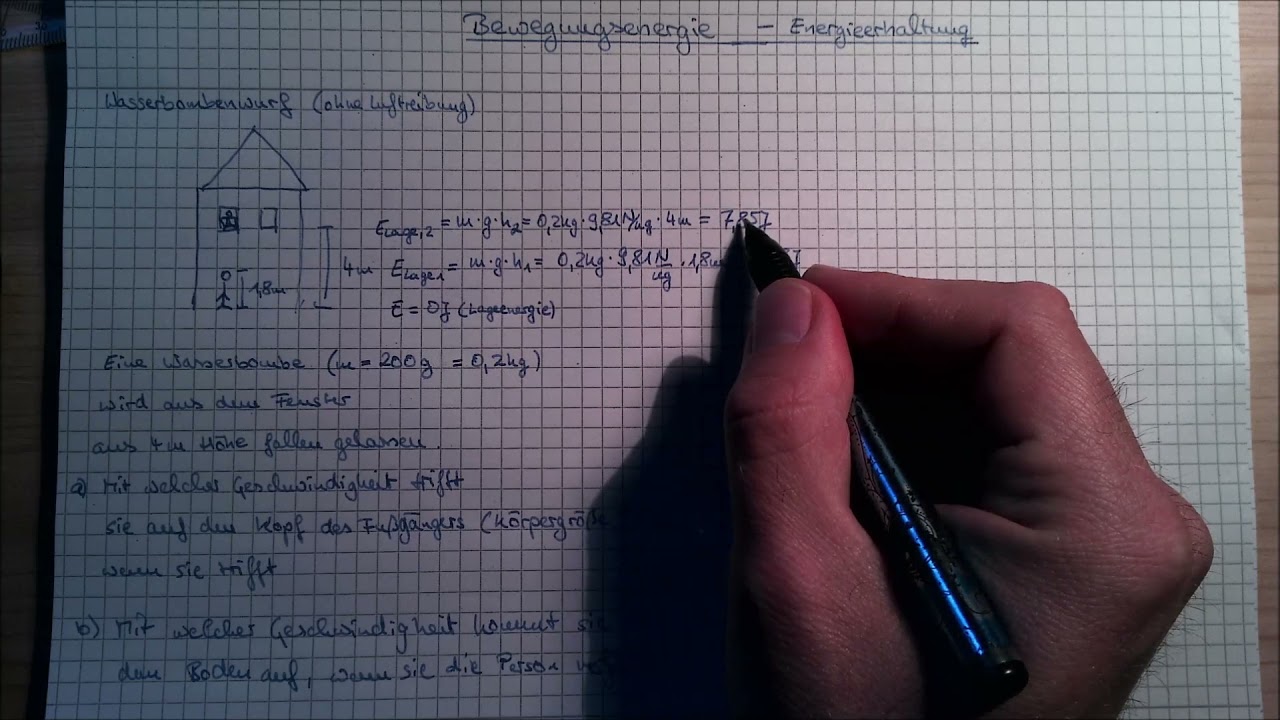 Bewegungsenergie - Energieerhaltung
Wasserbombenwurf (ohne Luftreibung)
E_Lage,2 = m·g·h₂ = 0,2kg·9,81N/kg·4m = 7,85J
4m E_Lage1 = m·g·h₁ = 0,2kg·9,81 N/kg·1,8m
1,8m
E = 0J (Lageenergie)
Eine Wasserbombe (m = 200g = 0,2kg)
wird aus dem Fenster
aus 4m Höhe fallen gelassen.
a) Mit welcher Geschwindigkeit trifft
sie auf den Kopf des Fußgängers (Körpergröße
wenn sie trifft
b) Mit welcher Geschwindigkeit kommt sie
dem Boden auf, wenn sie die Person